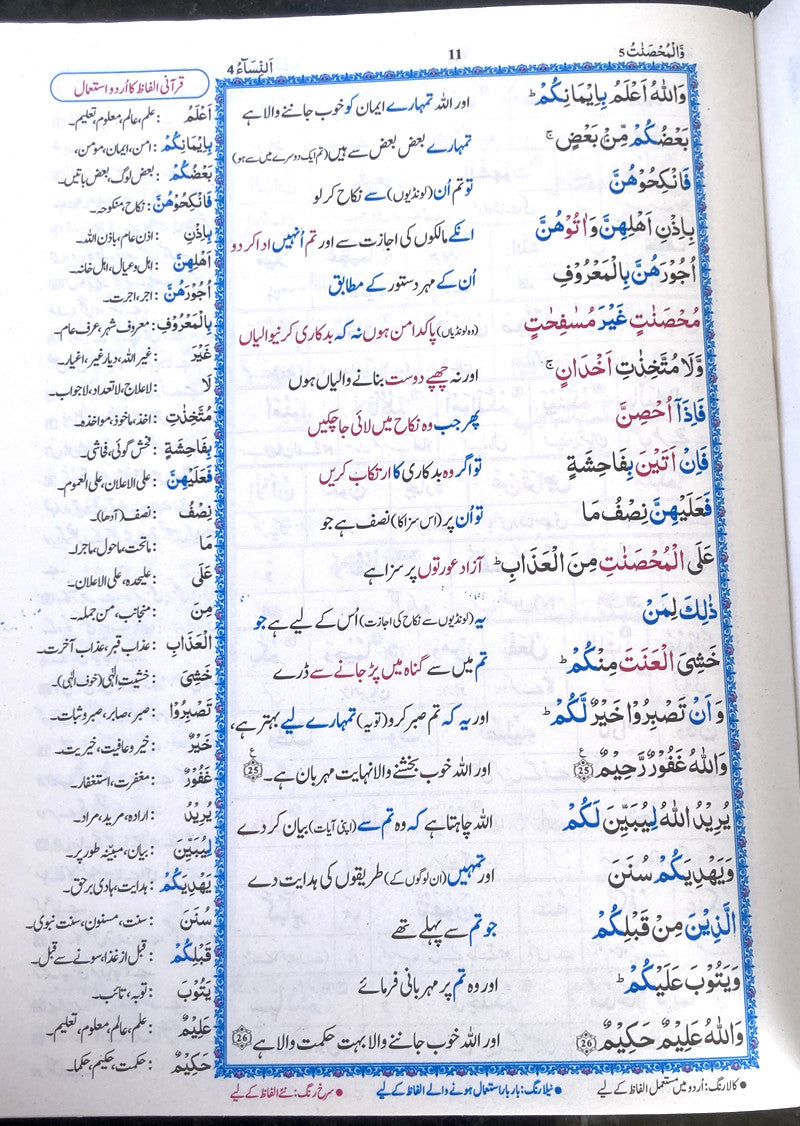 وَالْمُحْصَنٰتُ 5
11
اَلنِّسَآءُ 4
وَاللّٰهُ اَعْلَمُ بِاِيْمَانِكُمْ ؕ اور اللہ تمہارے ایمان کو خوب جاننے والا ہے
بَعْضُكُمْ مِّنْۢ بَعْضٍ ۚ تمہارے بعض بعض سے ہیں (تم ایک دوسرے میں سے ہو)
فَانْكِحُوْهُنَّ تو تم اُن (لونڈیوں) سے نکاح کرلو
بِاِذْنِ اَهْلِهِنَّ وَاٰتُوْهُنَّ انکے مالکوں کی اجازت سے اور تم اُنہیں ادا کردو
اُجُوْرَهُنَّ بِالْمَعْرُوْفِ اُن کے مہر دستور کے مطابق
مُحْصَنٰتٍ غَيْرَ مُسٰفِحٰتٍ (وہ لونڈیاں) پاکدامن ہوں نہ کہ بدکاری کرنیوالیاں
وَّلَا مُتَّخِذٰتِ اَخْدَانٍ ۚ اور نہ چھپے دوست بنانے والیاں ہوں
فَاِذَاۤ اُحْصِنَّ پھر جب وہ نکاح میں لائی جاچکیں
فَاِنْ اَتَيْنَ بِفَاحِشَةٍ تو اگر وہ بدکاری کا ارتکاب کریں
فَعَلَيْهِنَّ نِصْفُ مَا تو اُن پر (اس سزا کا) نصف ہے جو
عَلَى الْمُحْصَنٰتِ مِنَ الْعَذَابِ ؕ آزاد عورتوں پر سزا ہے
ذٰلِكَ لِمَنْ یہ (لونڈیوں سے نکاح کی اجازت) اُس کے لیے ہے جو
خَشِيَ الْعَنَتَ مِنْكُمْ ؕ تم میں سے گناہ میں پڑ جانے سے ڈرے
وَاَنْ تَصْبِرُوْا خَيْرٌ لَّكُمْ ؕ اور یہ کہ تم صبر کرو (تو یہ) تمہارے لیے بہتر ہے،
وَاللّٰهُ غَفُوْرٌ رَّحِيْمٌ 25 ع اور اللہ خوب بخشنے والا نہایت مہربان ہے۔ 25 ع
يُرِيْدُ اللّٰهُ لِيُبَيِّنَ لَكُمْ اللہ چاہتا ہے کہ وہ تم سے (اپنی آیات) بیان کردے
وَيَهْدِيَكُمْ سُنَنَ اور تمہیں (ان لوگوں کے) طریقوں کی ہدایت دے
الَّذِيْنَ مِنْ قَبْلِكُمْ جو تم سے پہلے تھے
وَيَتُوْبَ عَلَيْكُمْ ؕ اور وہ تم پر مہربانی فرمائے
وَاللّٰهُ عَلِيْمٌ حَكِيْمٌ 26 اور اللہ خوب جاننے والا بہت حکمت والا ہے 26
قرآنی الفاظ کا اُردو استعمال
اَعْلَمُ : علم، عالم، معلوم، تعلیم۔
بِاِيْمَانِكُمْ : امن، ایمان، مومن،
بَعْضُكُمْ : بعض لوگ، بعض باتیں۔
فَانْكِحُوْهُنَّ : نکاح، منکوحہ۔
بِاِذْنِ : اذن عام، باذن اللہ۔
اَهْلِهِنَّ : اہل و عیال، اہل خانہ۔
اُجُوْرَهُنَّ : اجر، اجرت۔
بِالْمَعْرُوْفِ : معروف شہر، عرف عام۔
غَيْرَ : غیر اللہ، دیار غیر، اغیار۔
لَا : لاعلاج، لاتعداد، لاجواب۔
مُتَّخِذٰتِ : اخذ، ماخوذ، مواخذہ۔
بِفَاحِشَةٍ : فحش گوئی، فحاشی۔
فَعَلَيْهِنَّ : علی الاعلان، علی العموم۔
نِصْفُ : نصف (آدھا)۔
مَا : ماتحت، ماحول، ماجرا۔
عَلَى : علیحدہ، علی الاعلان۔
مِنَ : منجانب، من جملہ۔
الْعَذَابِ : عذاب قبر، عذاب آخرت۔
خَشِيَ : خشیتِ الٰہی (خوف الٰہی)۔
تَصْبِرُوْا : صبر، صابر، صبر و ثبات۔
خَيْرٌ : خیر و عافیت، خیریت۔
غَفُوْرٌ : مغفرت، استغفار۔
يُرِيْدُ : ارادہ، مرید، مراد۔
لِيُبَيِّنَ : بیان، مبیّنہ طور پر۔
يَهْدِيَكُمْ : ہدایت، ہادی برحق۔
سُنَنَ : سنت، مسنون، سنت نبوی۔
قَبْلِكُمْ : قبل از غذا، سونے سے قبل۔
يَتُوْبَ : توبہ، تائب۔
عَلِيْمٌ : علم، عالم، معلوم، تعلیم۔
حَكِيْمٌ : حکمت، حکیم، حکما۔
● کالا رنگ : اُردو میں مستعمل الفاظ کے لیے ● نیلا رنگ : بار بار استعمال ہونے والے الفاظ کے لیے ● سرخ رنگ : نئے الفاظ کے لیے